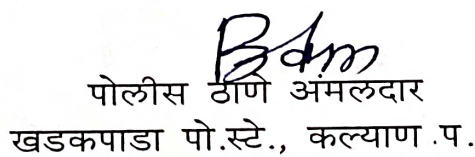 पोलीस ठाणे अंमलदार
खडकपाडा पो.स्टे., कल्याण .प.